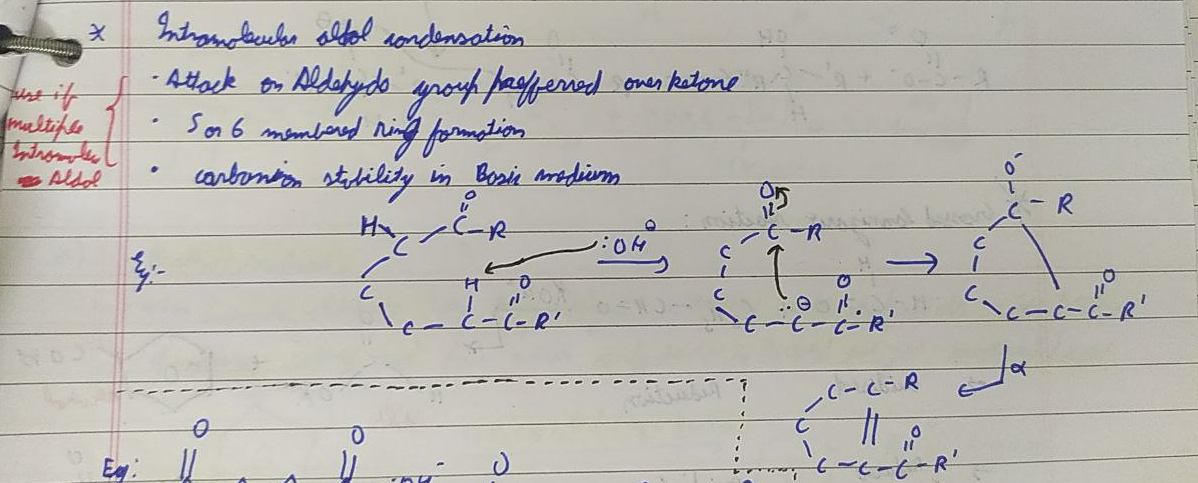 * Intramolecular aldol condensation
· Attack on Aldehyde group prefferred over ketone
· 5 or 6 membered ring formation
· carbanion stability in Basic medium
use if
multiple
Intramolec
Aldol
Eg:-
O
H C C-R
C H O :OH⊖
C-C-C-R'
O
C C-R
C
C ⊖ O
C-C-C-R'
O-
C-R
C
C O
C-C-C-R'
α
C-C-R
C O
C-C-C-R'
Eg:
O O